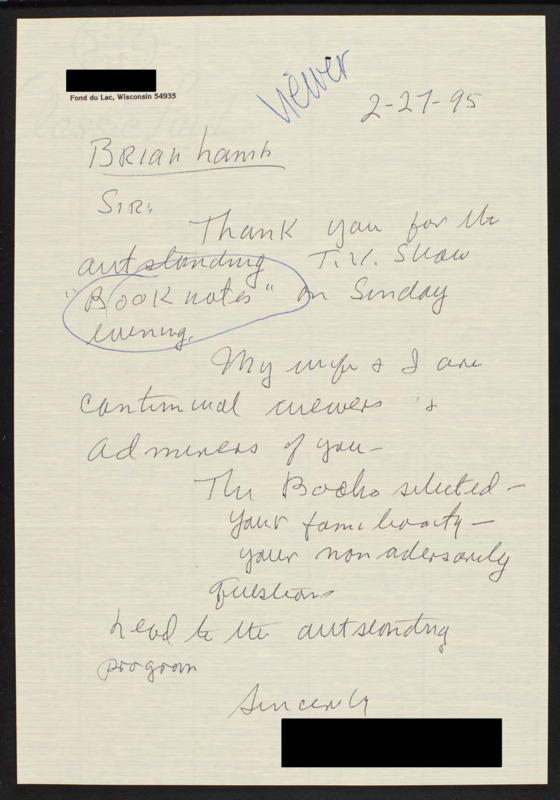 Fond du Lac, Wisconsin 54935
viewer
2-27-95
Brian Lamb
Sir:
Thank you for the
outstanding T.V. Show
"Booknotes" on Sunday
evening.
My wife & I are
continual viewers &
admirers of you-
The Books selected-
your familiarity-
your nonadersarily
questions
Lead to the outstanding
program
Sincerely